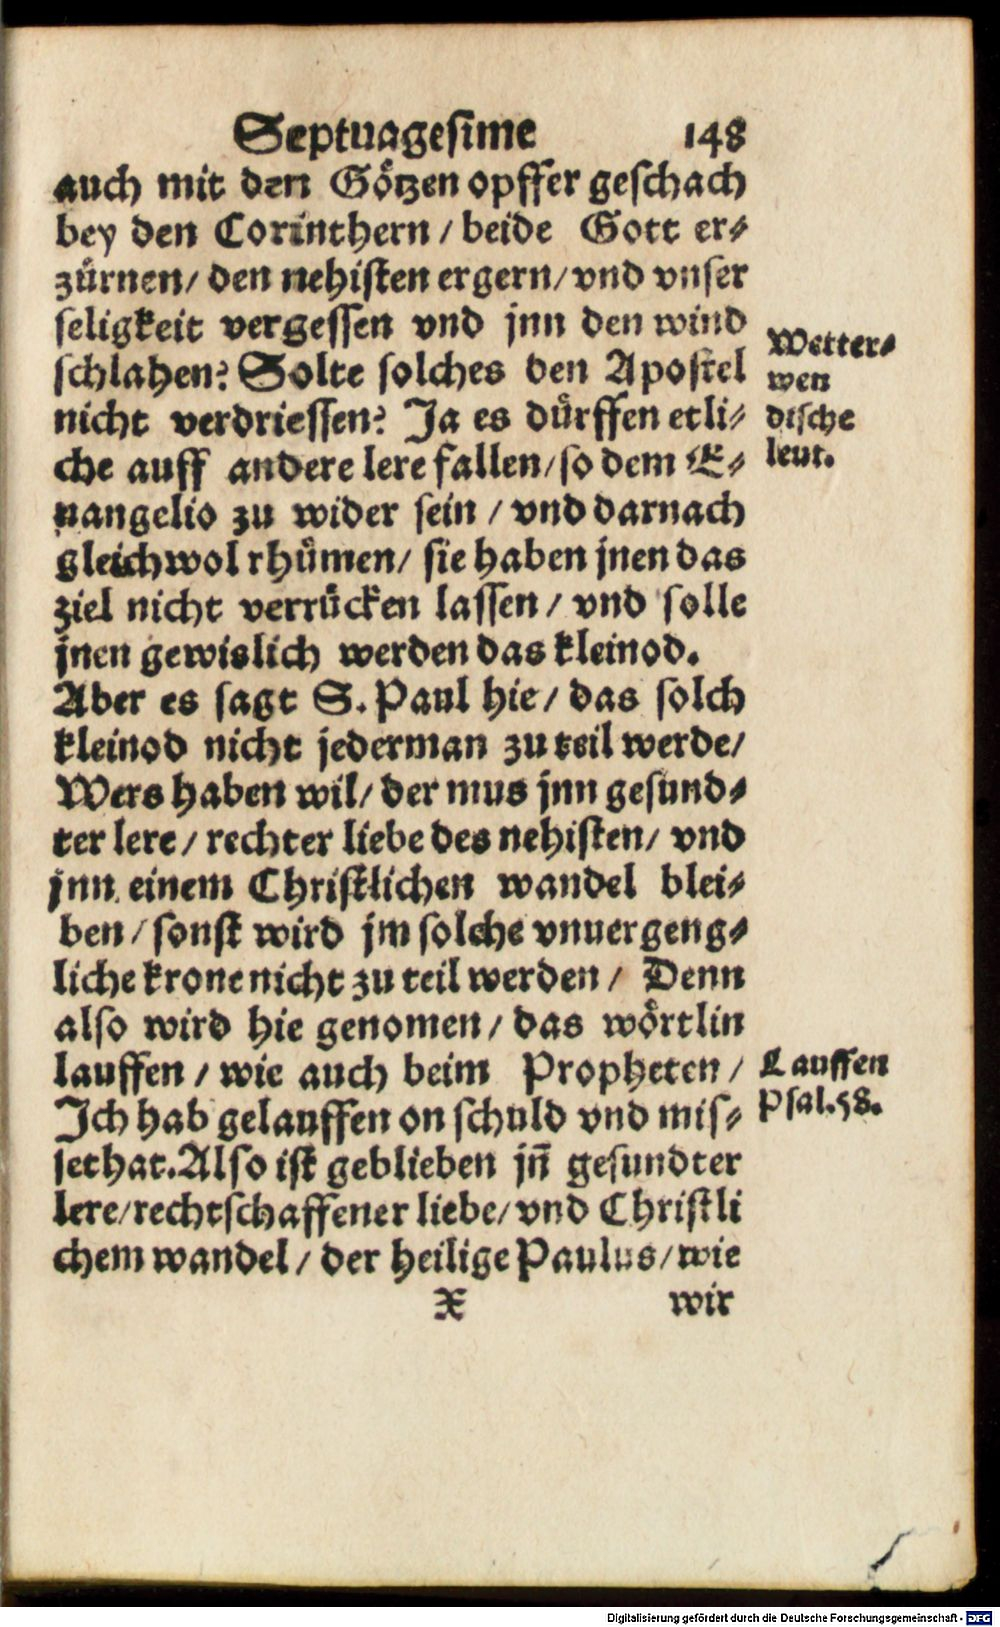 Septuagesime 148
auch mit den Götzen opffer geschach
bey den Corinthern / beide Gott er⸗
zürnen / den nehisten ergern / vnd vnser
seligkeit vergessen vnd jnn den wind
schlahen? Solte solches den Apostel
nicht verdriessen? Ja es dürffen etli⸗
che auff andere lere fallen / so dem E⸗
uangelio zu wider sein / vnd darnach
gleichwol rhümen / sie haben jnen das
ziel nicht verrücken lassen / vnd solle
jnen gewislich werden das kleinod.
Aber es sagt S. Paul hie / das solch
kleinod nicht jederman zu teil werde /
Wers haben wil / der mus jnn gesund⸗
ter lere / rechter liebe des nehisten / vnd
jnn einem Christlichen wandel blei⸗
ben / sonst wird jm solche vnuergeng⸗
liche krone nicht zu teil werden / Denn
also wird hie genomen / das wörtlin
lauffen / wie auch beim Propheten /
Ich hab gelauffen on schuld vnd mis⸗
sethat. Also ist geblieben jn̄ gesundter
lere / rechtschaffener liebe / vnd Christli
chem wandel / der heilige Paulus / wie
X wir
Wetter⸗
wen
dische
leut.
Lauffen
Psal. 58.
Digitalisierung gefördert durch die Deutsche Forschungsgemeinschaft - DFG